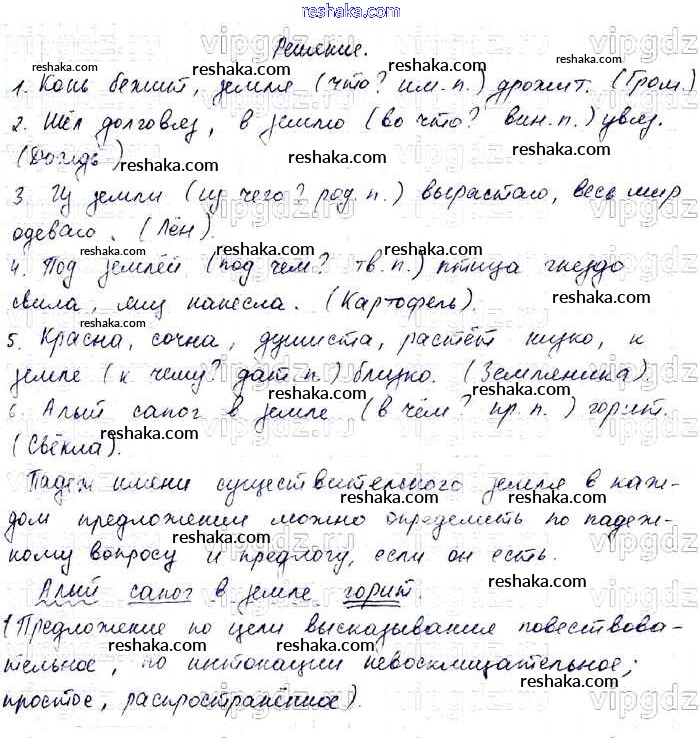 reshaka.com
Решение.
1. Конь бежит, земля (что? им. п.) дрожит. (Гром.)
2. Шёл долговяз, в землю (во что? вин. п.) увяз.
(Дождь)
3. Из земли (из чего? род. п.) вырастаю, весь мир
одеваю. (Лён).
4. Под землёй (под чем? тв. п.) птица гнездо
свила, яиц нанесла. (Картофель).
5. Красна, сочна, душиста, растёт низко, к
земле (к чему? дат. п.) близко. (Земляника).
6. Алый сапог в земле (в чём? пр. п.) горит.
(Свёкла).
Падеж имени существительного земля в каж-
дом предложении можно определить по падеж-
ному вопросу и предлогу, если он есть.
Алый сапог в земле горит.
(Предложение по цели высказывания повествова-
тельное, по интонации невосклицательное;
простое, распространённое).